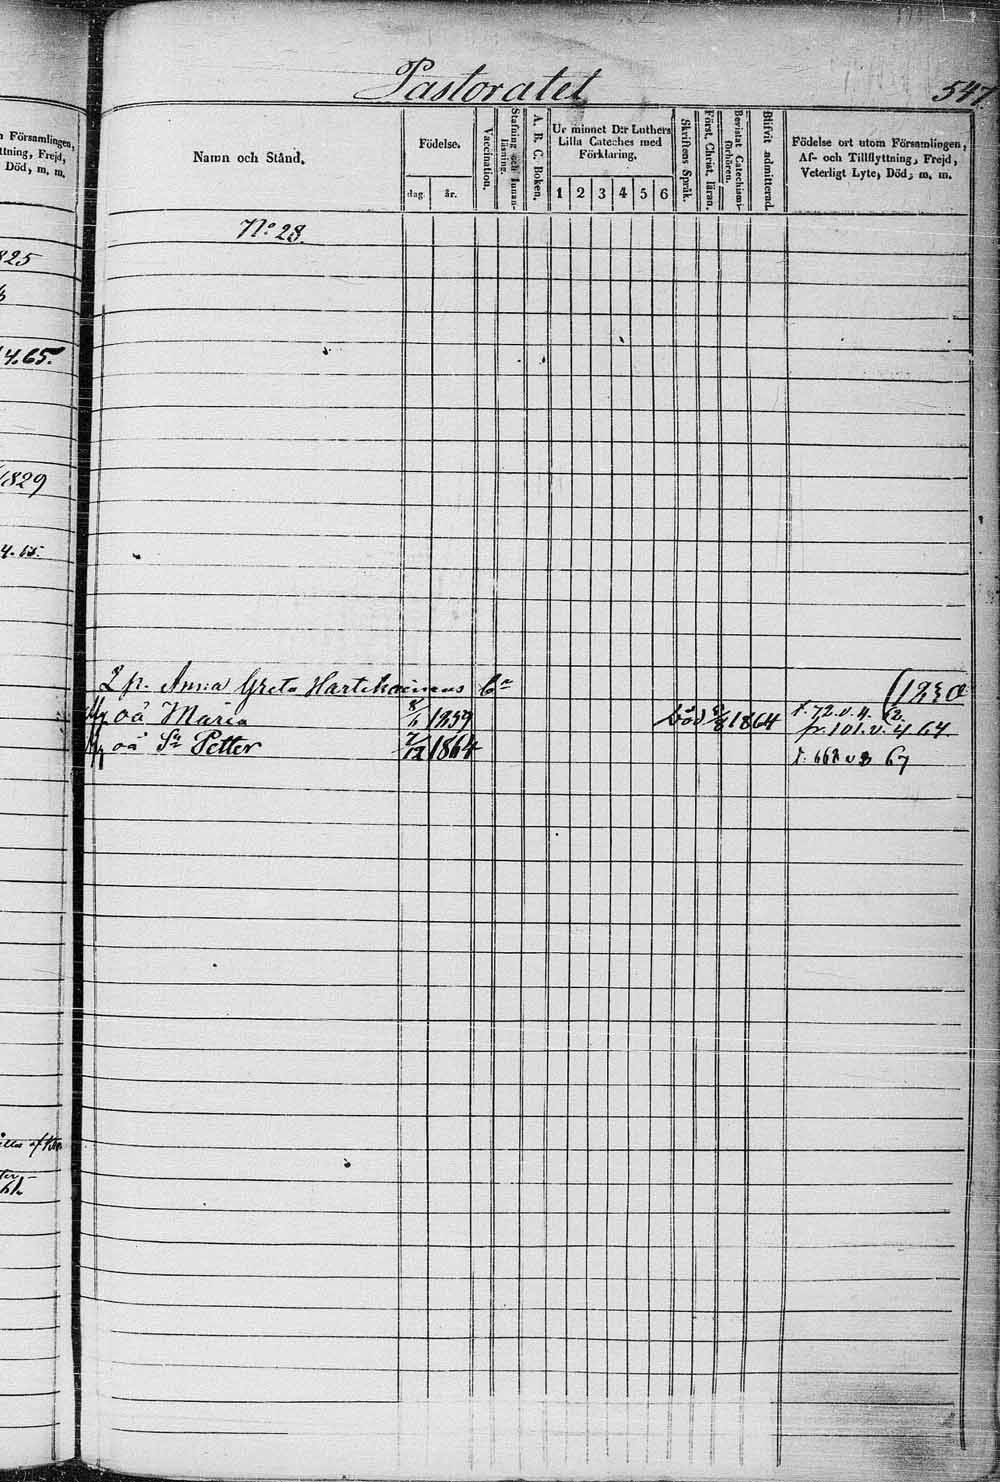 Församlingen,
ttning, Frejd,
Död, m. m.
825
4.65.
1829
4. 65.
Pastoratet
547.
Namn och Stånd.
Födelse.
dag.
år.
Vaccination.
Stafning och Innanläsning.
A. B. C. Boken.
Ur minnet D:r Luthers
Lilla Cateches med
Förklaring.
1 2 3 4 5 6
Skriftens Språk.
Först. Christ. läran.
Bevistat Catechismiförhören.
Blifvit admitterad.
Födelse ort utom Församlingen,
Af- och Tillflyttning, Frejd,
Veterligt Lyte, Död, m. m.
No 28.
Anna Greta Hartikainens bn
oä Maria 8/6 1859 död 5/8 1864 f. 72. v. 4. 62.
p. 101. v. 4 64
oä Sn Petter 7/12 1864 f. 668 v 3 67